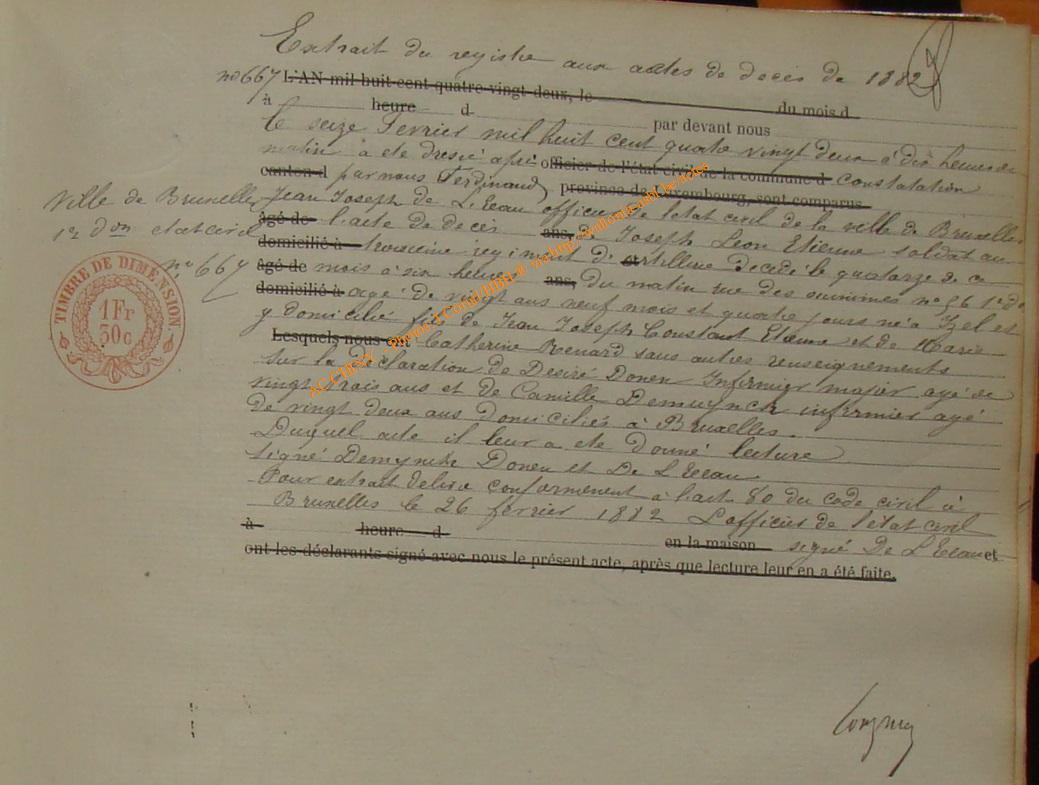 Extrait du registre aux actes de decès de 1882
nº 667 L'AN mil huit cent quatre-vingt-deux, le du mois d
à heure d par devant nous
le seize Fevrier mil huit cent quatre vingt deux à dix heures du
matin a été dressé après officier de l'état civil de la commune d constatation
canton d par nous Ferdinand province de Luxembourg, sont comparus
Ville de Bruxelles Jean Joseph de L'Eeau officier de l'état civil de la ville de Bruxelles
1re don etat civil âgé de l'acte de decès ans, de Joseph Leon Etienne soldat au
domicilié à troisieme regiment d'artillerie decedé le quatorze de ce
nº 667 âgé de mois à six heures ans, du matin rue des nº 56 1re don
domicilié à agé de vingt ans neuf mois et quatre jours né à Izel et
y domicilié fils de Jean Joseph Constant Etienne et de Marie
Lesquels nous ont Catherine Renard sans autres renseignements
Sur la Déclaration de Desiré Donen Infirmier major agé de
vingt trois ans et de Camille Demuynck infirmier agé
de vingt deux ans domiciliés à Bruxelles.
Duquel acte il leur a ete donné lecture
signé Demynck Donen et De L'Eeau
Pour extrait delivré conformement à l'art 80 du code civil à
Bruxelles le 26 fevrier 1882 L'officier de l'état civil
à heure d en la maison signé De L'Eeau et
ont les déclarants signé avec nous le présent acte, après que lecture leur en a été faite.
TIMBRE DE DIMENSION
1 Fr
30 c